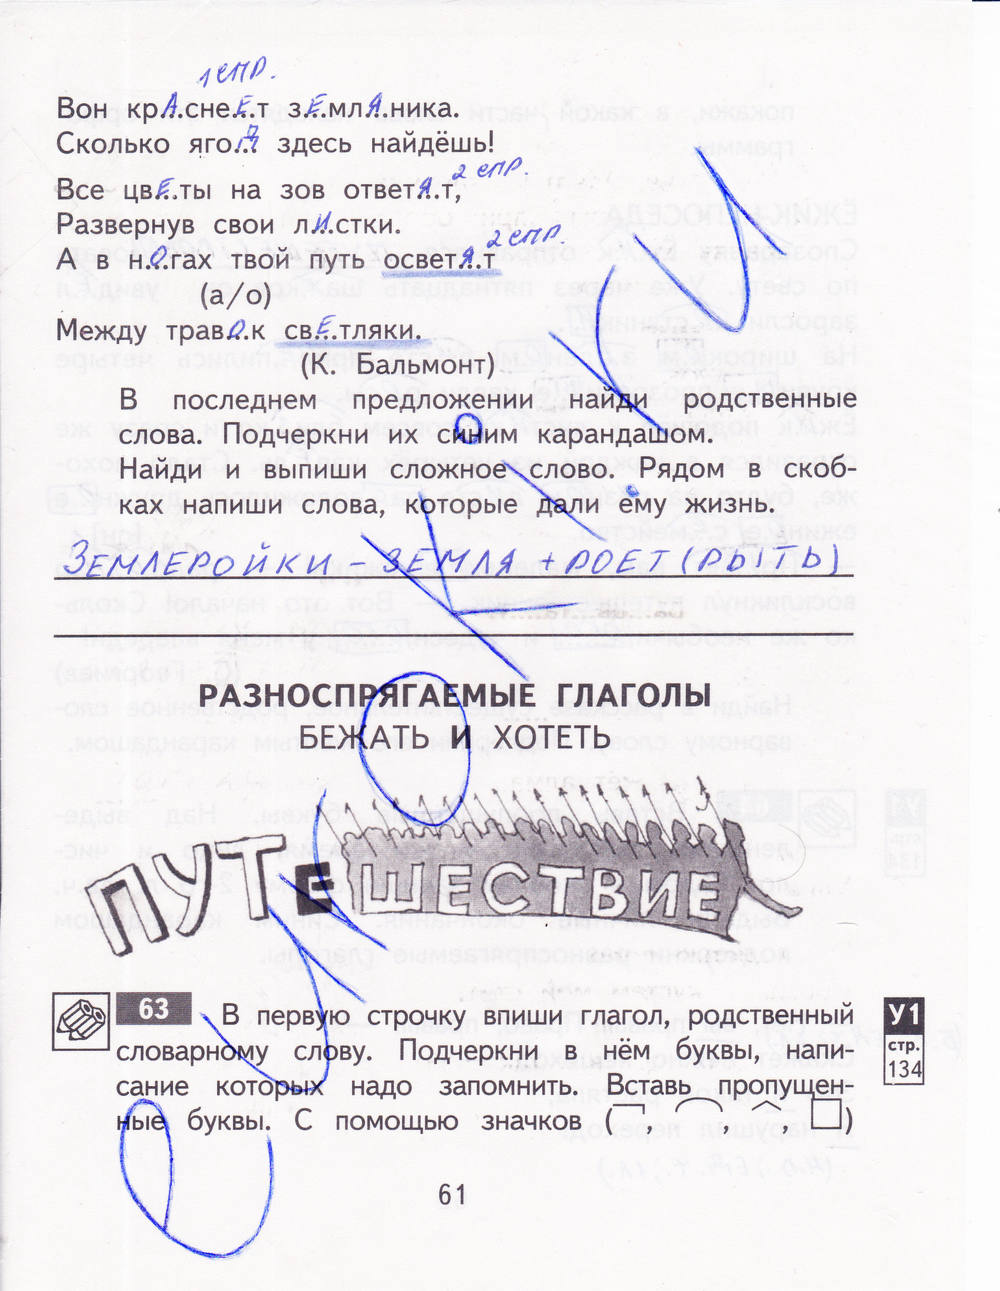 1 СПР.
Вон крА.снеЕ.т зЕ.млА.ника.
Сколько яго.Д здесь найдёшь!
2 СПР.
Все цвЕ.ты на зов ответЯ.т,
Развернув свои лИ.стки.
2 СПР
А в н.О.гах твой путь осветЯ.т
(а/о)
Между травО.к свЕ.тляки.
(К. Бальмонт)
В последнем предложении найди родственные
слова. Подчеркни их синим карандашом.
Найди и выпиши сложное слово. Рядом в скоб-
ках напиши слова, которые дали ему жизнь.
ЗЕМЛЕРОЙКИ ЗЕМЛЯ + РОЕТ (РЫТЬ)
РАЗНОСПРЯГАЕМЫЕ ГЛАГОЛЫ
БЕЖАТЬ И ХОТЕТЬ
ПУТЕШЕСТВИЕ
63 В первую строчку впиши глагол, родственный
словарному слову. Подчеркни в нём буквы, напи-
сание которых надо запомнить. Вставь пропущен-
ные буквы. С помощью значков (¬, ⌒, ^, □)
У1
стр.
134
61